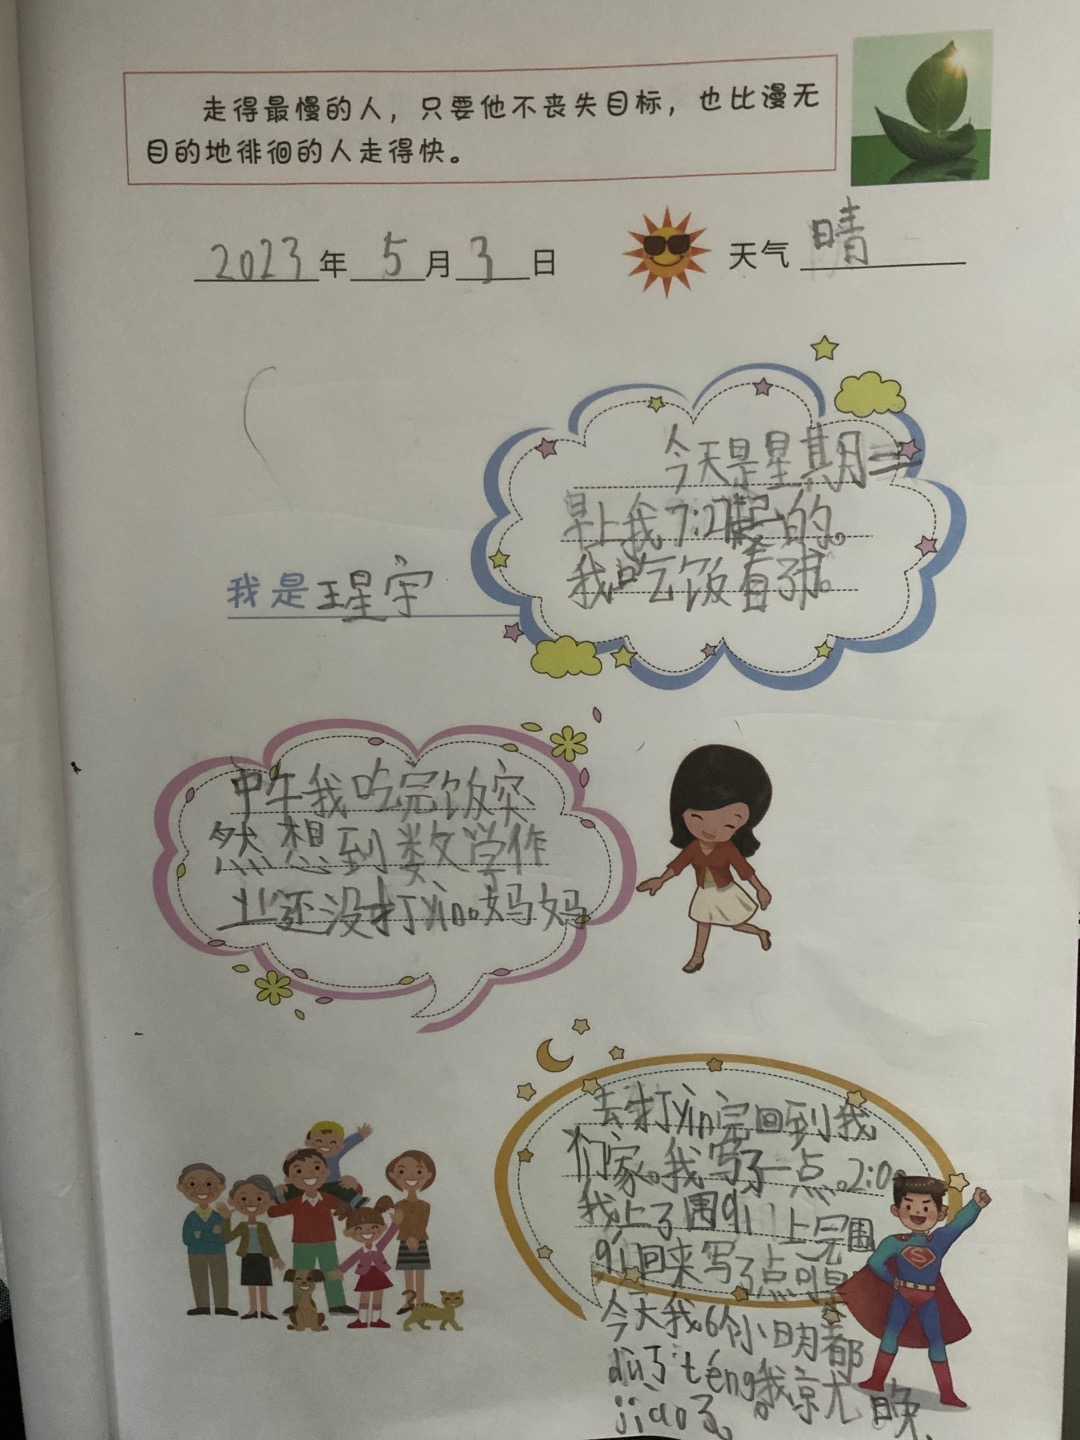 走得最慢的人，只要他不丧失目标，也比漫无
目的地徘徊的人走得快。
2023年5月3日
天气 晴
今天是星期三
早上我7:27起的。
我吃饭看了书。
我是王星宇
中午我吃完饭突
然想到数学作
业还没打yin。妈妈
去打yin完回到我
们家。我写了一点。2:0
我上了围
上完围
回来写了点可是
今天我6个小时都
teng。我
jiao了。
晚
S